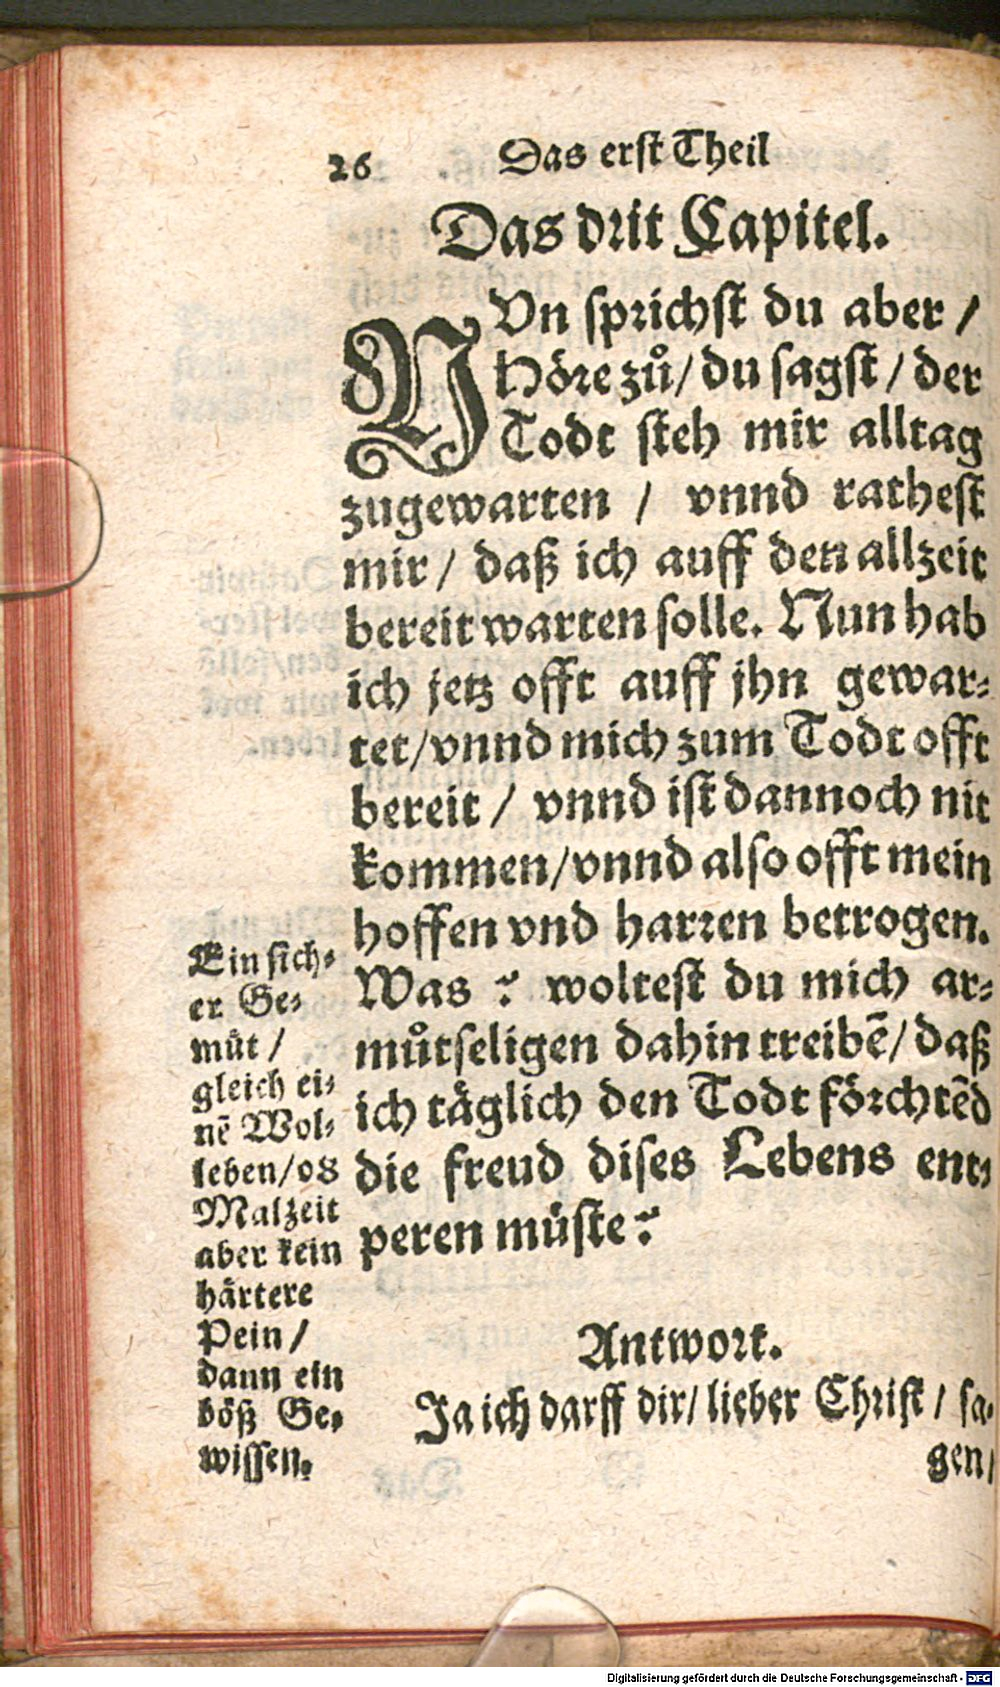 26 Das erst Theil
Das drit Capitel.
NVn sprichst du aber /
Höre zuͦ / du sagst / der
Todt steh mir alltag
zugewarten / vnnd rathest
mir / daß ich auff den allzeit
bereit warten solle. Nun hab
ich jetz offt auff jhn gewar-
tet / vnnd mich zum Todt offt
bereit / vnnd ist dannoch nit
kommen / vnnd also offt mein
hoffen vnd harren betrogen.
Was? woltest du mich ar-
muͦtseligen dahin treibẽ / daß
ich täglich den Todt förchtẽd
die freud dises Lebens ent-
peren müste?
Ein sich-
er Ge-
müt /
gleich ei-
nẽ Wol-
leben / os
Malzeit
aber kein
härtere
Pein /
dann ein
böß Ge-
wissen.
Antwort.
Ja ich darff dir / lieber Christ / sa-
gen /
Digitalisierung gefördert durch die Deutsche Forschungsgemeinschaft - DFG